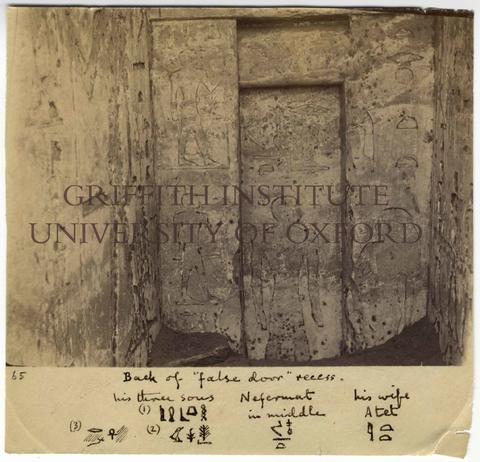 GRIFFITH INSTITUTE
UNIVERSITY OF OXFORD
65
Back of "false door" recess.
his three sons Nefermat his wife
(1) in middle Atet
(3) (2)